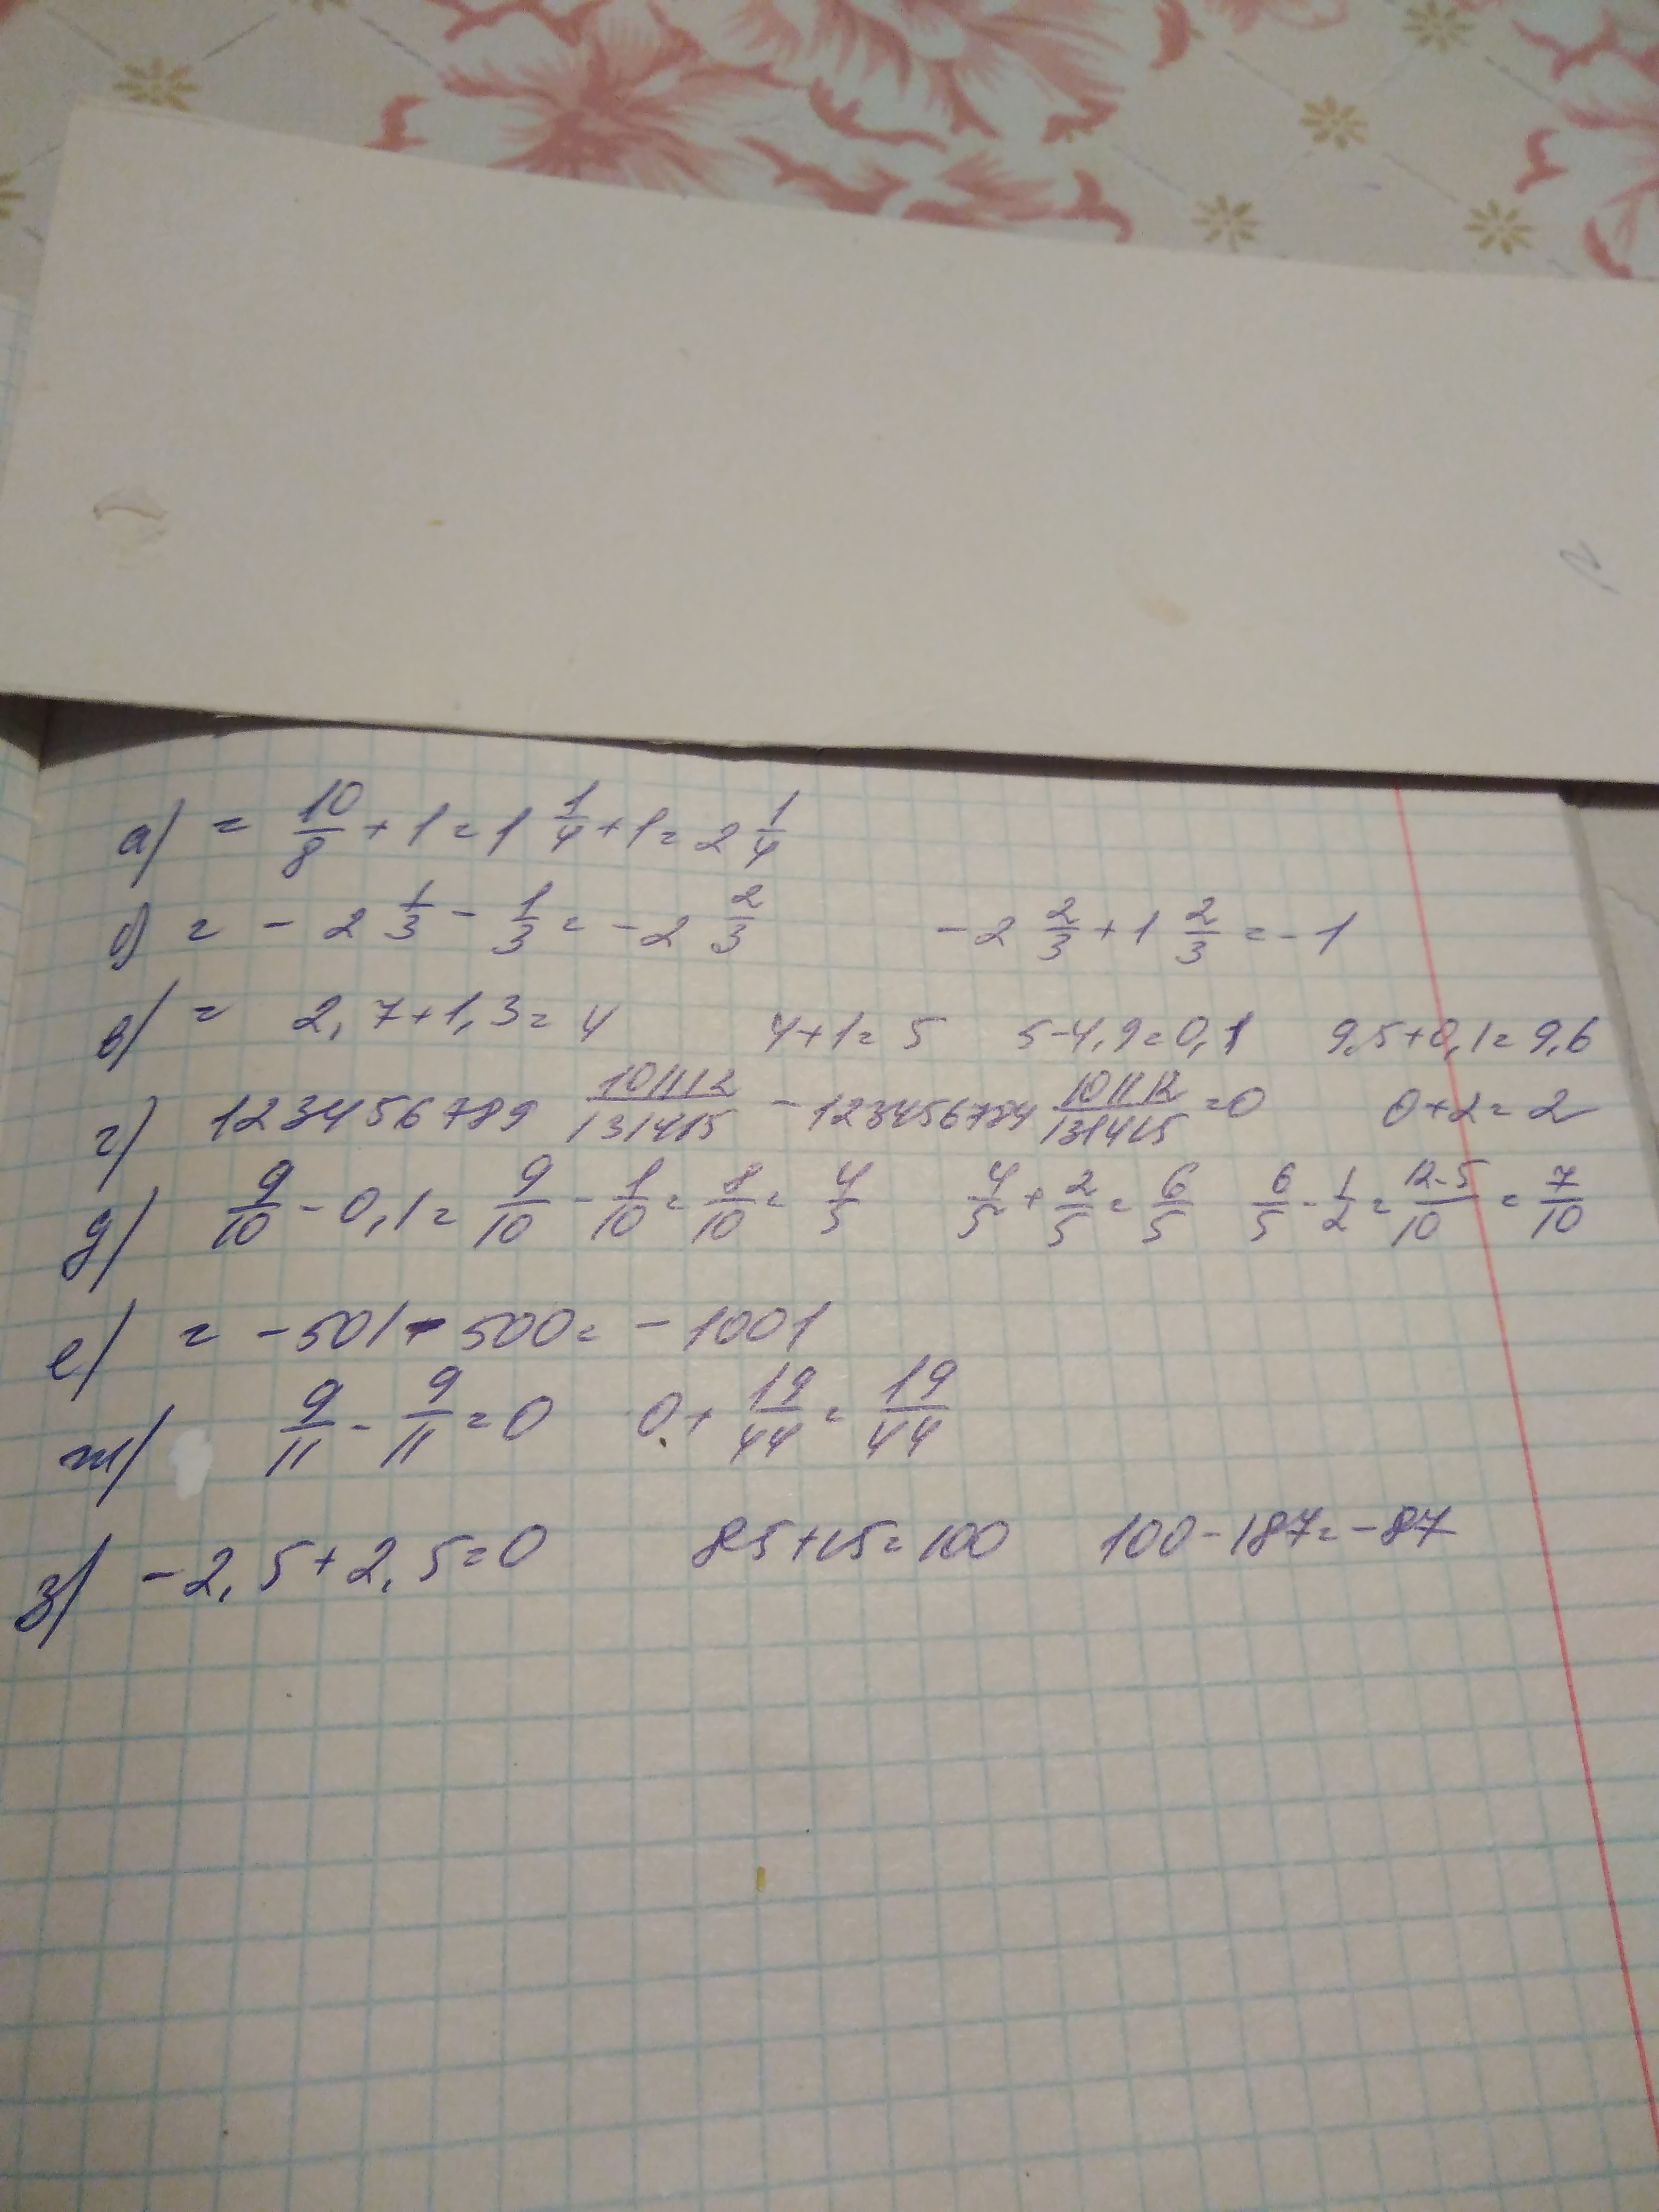 а) = 10/8 + 1 = 1 1/4 + 1 = 2 1/4
б) = - 2 1/3 - 1/3 = - 2 2/3 - 2 2/3 + 1 2/3 = - 1
в) = 2,7 + 1,3 = 4 4 + 1 = 5 5 - 4,9 = 0,1 9,5 + 0,1 = 9,6
г) 123456789 101112/131415 - 123456789 101112/131415 = 0 0 + 2 = 2
д) 9/10 - 0,1 = 9/10 - 1/10 = 8/10 = 4/5 4/5 + 2/5 = 6/5 6/5 - 1/2 = 12-5/10 = 7/10
е) = - 501 - 500 = - 1001
ж) 9/11 - 9/11 = 0 0 + 19/44 = 19/44
з) - 2,5 + 2,5 = 0 85 + 15 = 100 100 - 187 = - 87